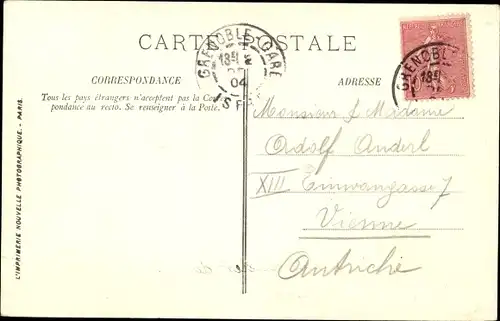 CARTE POSTALE
CORRESPONDANCE
Tous les pays étrangers n'acceptent pas la Corres-
pondance au recto. Se renseigner à la Poste.
ADRESSE
GRENOBLE GARE
04
GRENOBLE
Monsieur & Madame
Adolf Anderl
XIII Einwangasse 7
Vienne
Autriche
L'IMPRIMERIE NOUVELLE PHOTOGRAPHIQUE. - PARIS.